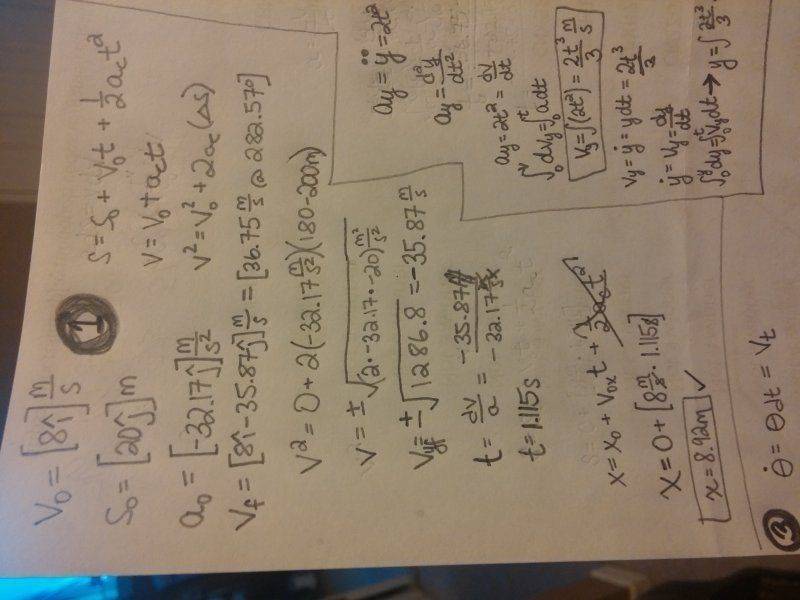 ①
V₀ = [8î] m/s
S₀ = [20ĵ] m
a₀ = [-32.17ĵ] m/s²
V_f = [8î - 35.87ĵ] m/s = [36.75 m/s @ 282.57°]
S = S₀ + V₀t + ½a_ct²
V = V₀ + a_ct
V² = V₀² + 2a_c(Δs)
V² = 0 + 2(-32.17 m/s²)(180-200m)
V = ± √(2·-32.17·-20) m²/s²
V_yf = ± √1286.8 = -35.87 m/s
t = dv/a = -35.87/-32.17
t = 1.115s
x = x₀ + V₀ₓt + ½a_ct²
x = 0 + [8 m/s · 1.115s]
x = 8.92m ✓
a_y = ÿ = 2t²
a_y = d²y/dt²
a_y = 2t² = dv/dt
∫₀ᵛ dv_y = ∫₀ᵗ a dt
V_y = ∫(2t²) = 2t³/3 m/s
V_y = ẏ = y dt = 2t³/3
ẏ = V_y = dy/dt
∫₀ʸ dy = ∫₀ᵗ V_y dt → y = ∫ 2t³/3
③
θ̇ = θdt = V_t